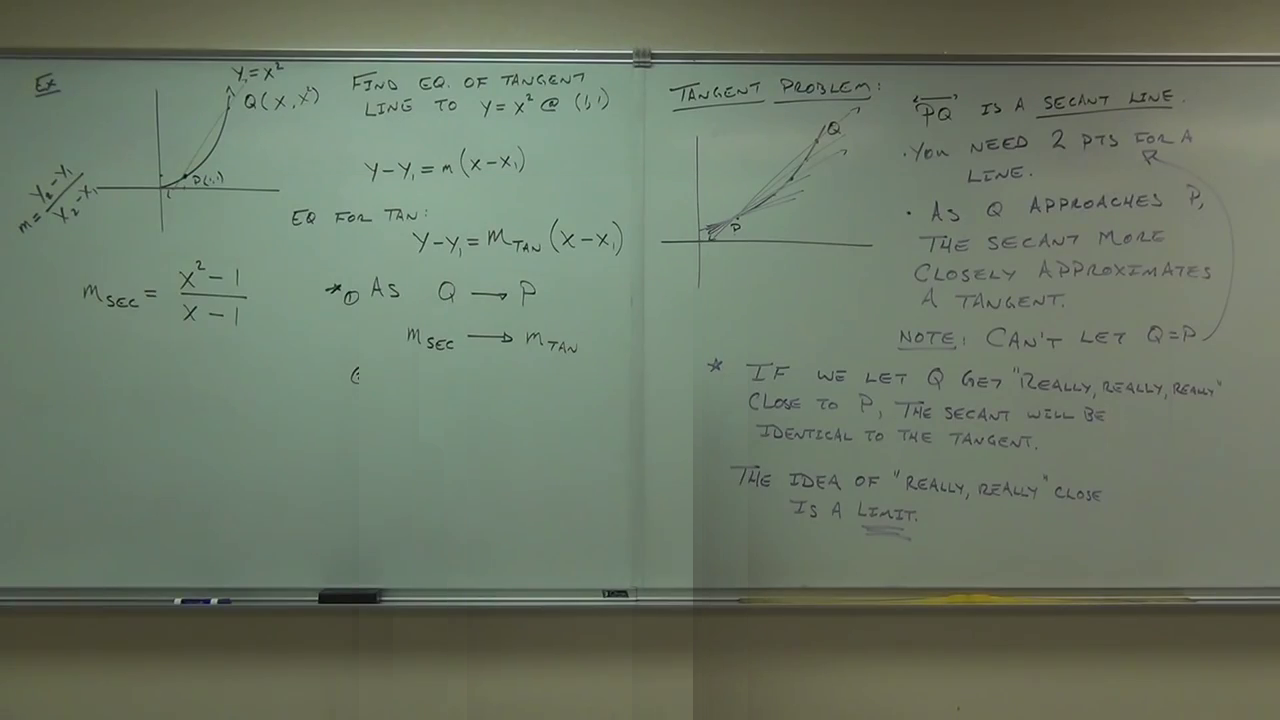 Ex
Y₁ = X²
Q(X, X²)
P(1,1)
m = Y₂ - Y₁ / X₂ - X₁
m SEC = X² - 1 / X - 1
FIND EQ. OF TANGENT
LINE TO Y = X² @ (1,1)
Y - Y₁ = m(X - X₁)
EQ FOR TAN:
Y - Y₁ = m TAN (X - X₁)
* ① AS Q → P
m SEC → m TAN
TANGENT PROBLEM:
Q
P
PQ IS A SECANT LINE.
· YOU NEED 2 PTS FOR A
LINE.
· AS Q APPROACHES P,
THE SECANT MORE
CLOSELY APPROXIMATES
A TANGENT.
NOTE: CAN'T LET Q = P
* IF WE LET Q GET "REALLY, REALLY, REALLY"
CLOSE TO P, THE SECANT WILL BE
IDENTICAL TO THE TANGENT.
THE IDEA OF "REALLY, REALLY" CLOSE
IS A LIMIT.